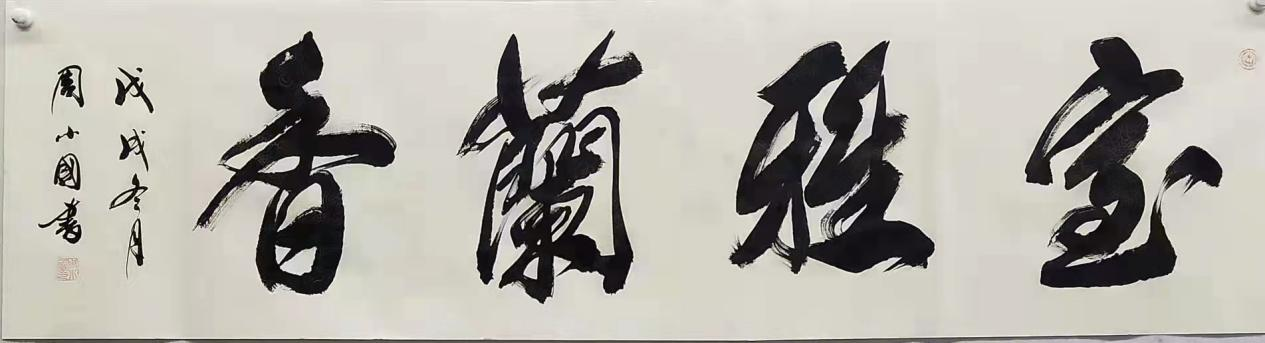 室雅蘭香
戊戌冬月
周小國書